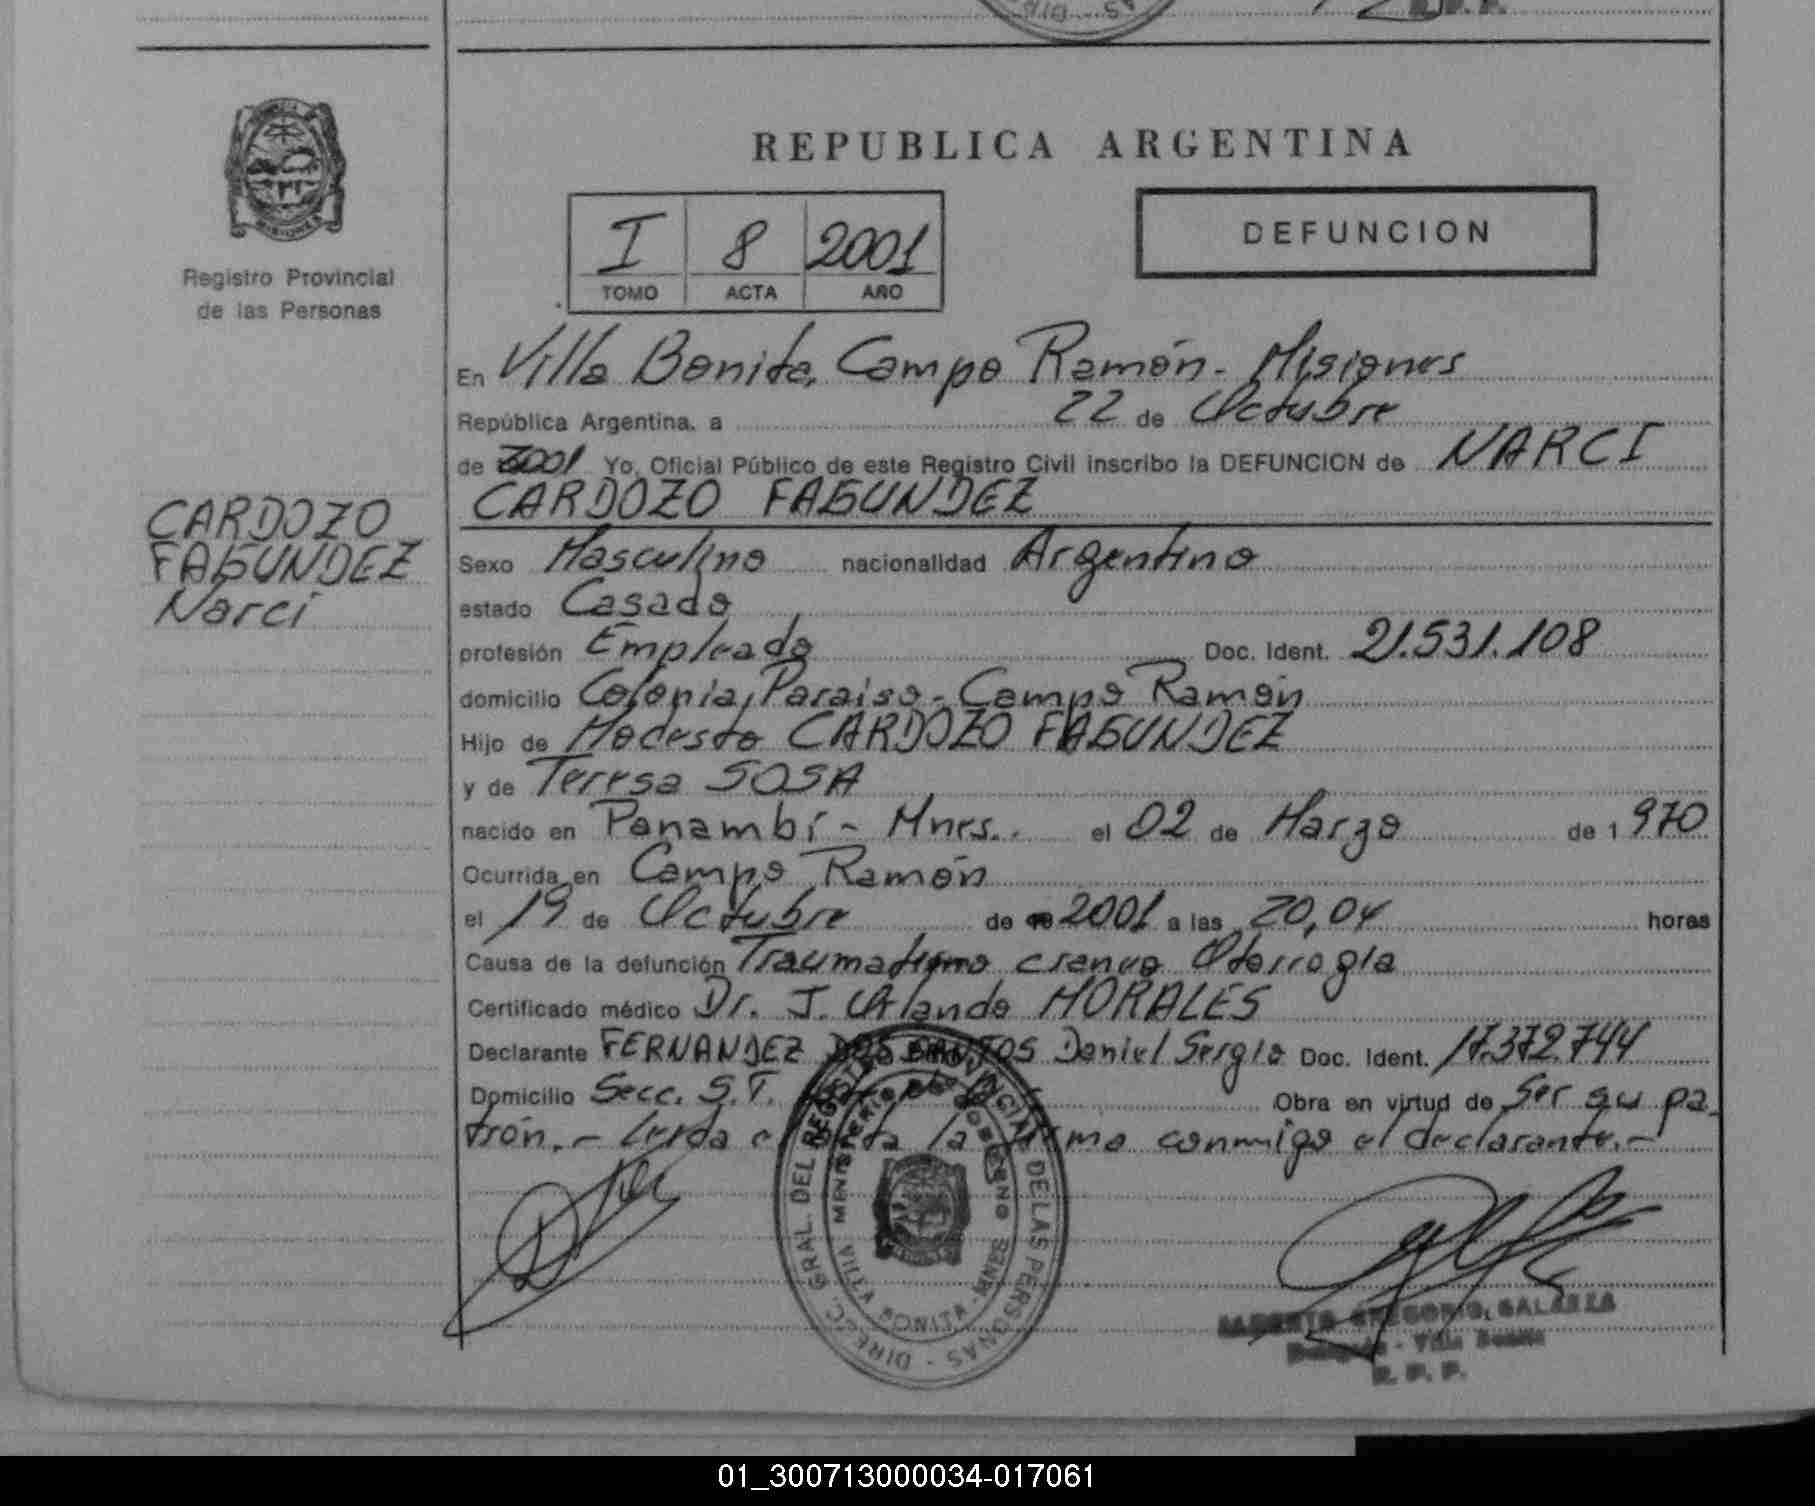 REPUBLICA ARGENTINA
MISIONES
Registro Provincial
de las Personas
I 8 2001
TOMO ACTA AÑO
DEFUNCION
En Villa Bonita, Campo Ramón - Misiones
República Argentina, a 22 de Octubre
de 2001 Yo, Oficial Público de este Registro Civil inscribo la DEFUNCION de NARCI
CARDOZO FAGUNDEZ
CARDOZO
FAGUNDEZ
Narci
Sexo Masculino nacionalidad Argentino
estado Casado
profesión Empleado Doc. Ident. 21.531.108
domicilio Colonia Paraiso - Campo Ramón
Hijo de Modesto CARDOZO FAGUNDEZ
y de Teresa SOSA
nacido en Panambí - Mnes. el 02 de Marzo de 1970
Ocurrida en Campo Ramón
el 19 de Octubre de 2001 a las 20,04 horas
Causa de la defunción Traumatismo craneo Otorrogia
Certificado médico Dr. J. Orlando MORALES
Declarante FERNANDEZ DOS SANTOS Daniel Sergio Doc. Ident. 17.372.744
Domicilio Secc. S.T. Obra en virtud de Ser su pa-
trón.- Leida el acta la firma conmigo el declarante.-
DIRECC. GRAL. DEL REGISTRO PROVINCIAL DE LAS PERSONAS
VILLA BONITA - MNES
GREGORIO GALARZA
Villa Bonita
R. P. P.
01_300713000034-017061